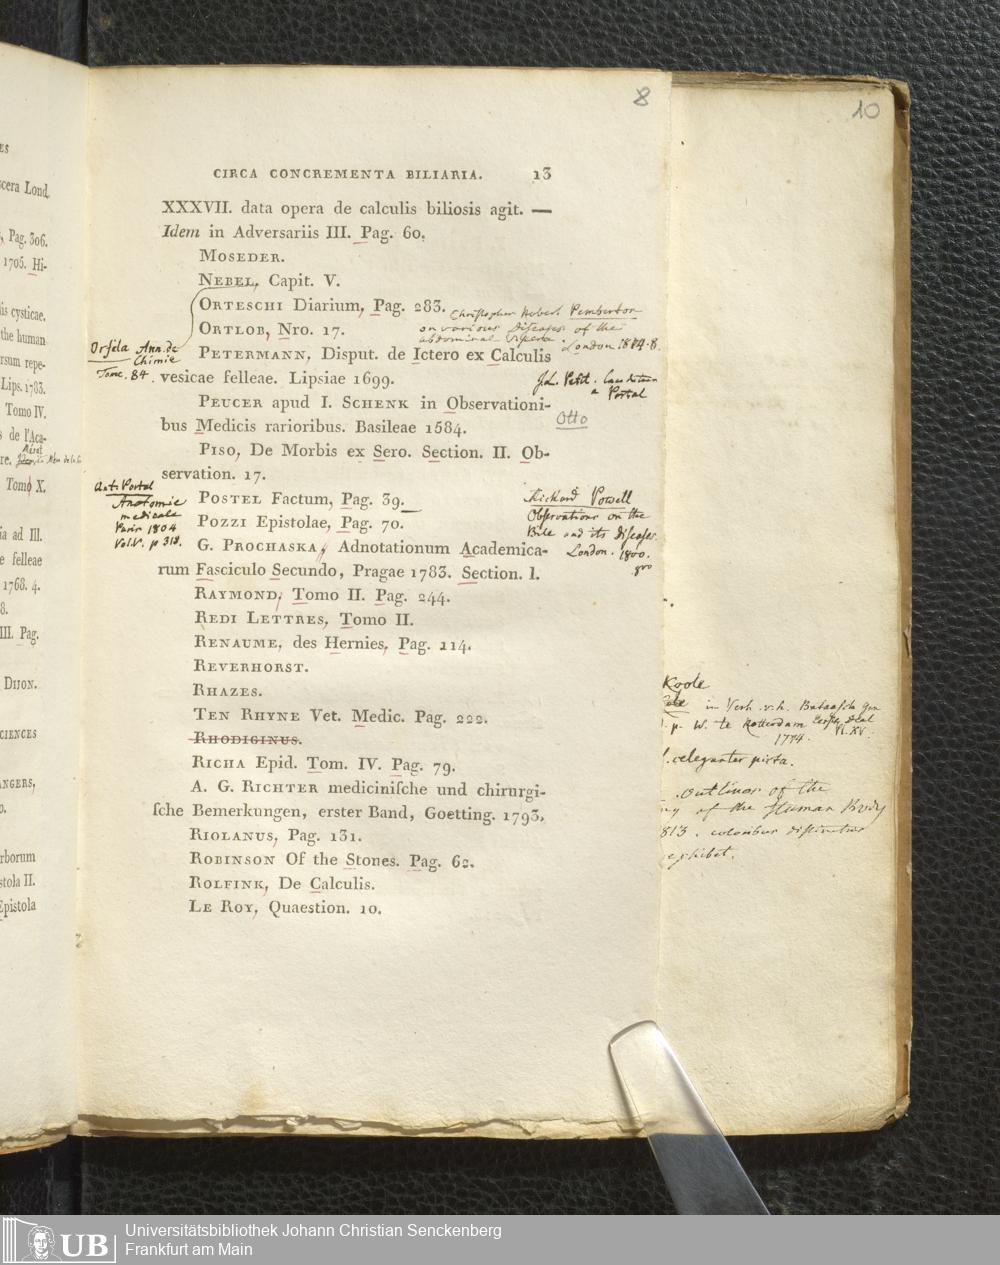 8
10
CIRCA CONCREMENTA BILIARIA. 13
XXXVII. data opera de calculis biliosis agit. —
Idem in Adversariis III. Pag. 60.
MOSEDER.
NEBEL, Capit. V.
ORTESCHI Diarium, Pag. 283.
Christopher Robert Pemberton
on various Diseases of the
abdominal Viscera.
London 1814. 8.
ORTLOB, Nro. 17.
Orfila Ann. de
Chimie
Tom. 84.
PETERMANN, Disput. de Ictero ex Calculis
vesicae felleae. Lipsiae 1699.
Petit.
a Portal
PEUCER apud I. SCHENK in Observationi-
bus Medicis rarioribus. Basileae 1584.
Otto
PISO, De Morbis ex Sero. Section. II. Ob-
servation. 17.
Ant. Portal
Anatomie
medicale
Paris 1804
Vol. V. p 313.
POSTEL Factum, Pag. 39.
Richard Powell
Observations on the
Bile and its diseases.
London. 1800.
8vo
POZZI Epistolae, Pag. 70.
G. PROCHASKA, Adnotationum Academica-
rum Fasciculo Secundo, Pragae 1783. Section. I.
RAYMOND, Tomo II. Pag. 244.
REDI LETTRES, Tomo II.
RENAUME, des Hernies, Pag. 114.
REVERHORST.
RHAZES.
TEN RHYNE Vet. Medic. Pag. 222.
RHODIGINUS.
RICHA Epid. Tom. IV. Pag. 79.
A. G. RICHTER mediciniſche und chirurgi-
ſche Bemerkungen, erster Band, Goetting. 1793.
RIOLANUS, Pag. 131.
ROBINSON Of the Stones. Pag. 62.
ROLFINK, De Calculis.
LE ROY, Quaestion. 10.
in Verh. v. h. Bataafsch Gen
p. W. te Rotterdam
1774. VI. XV.
eleganter picta.
outlines of the
of the Human Body
813. coloribus distinctas
exhibet.
ES
scera Lond.
Pag. 306.
1705. Hi-
is cysticae.
the human
rsum repe-
Lips. 1783.
Tomo IV.
s de l'Aca-
re.
Tomo X.
ia ad III.
e felleae
1768. 4.
8.
III. Pag.
DIJON.
CIENCES
ANGERS,
rborum
stola II.
Epistola
UB
Universitätsbibliothek Johann Christian Senckenberg
Frankfurt am Main